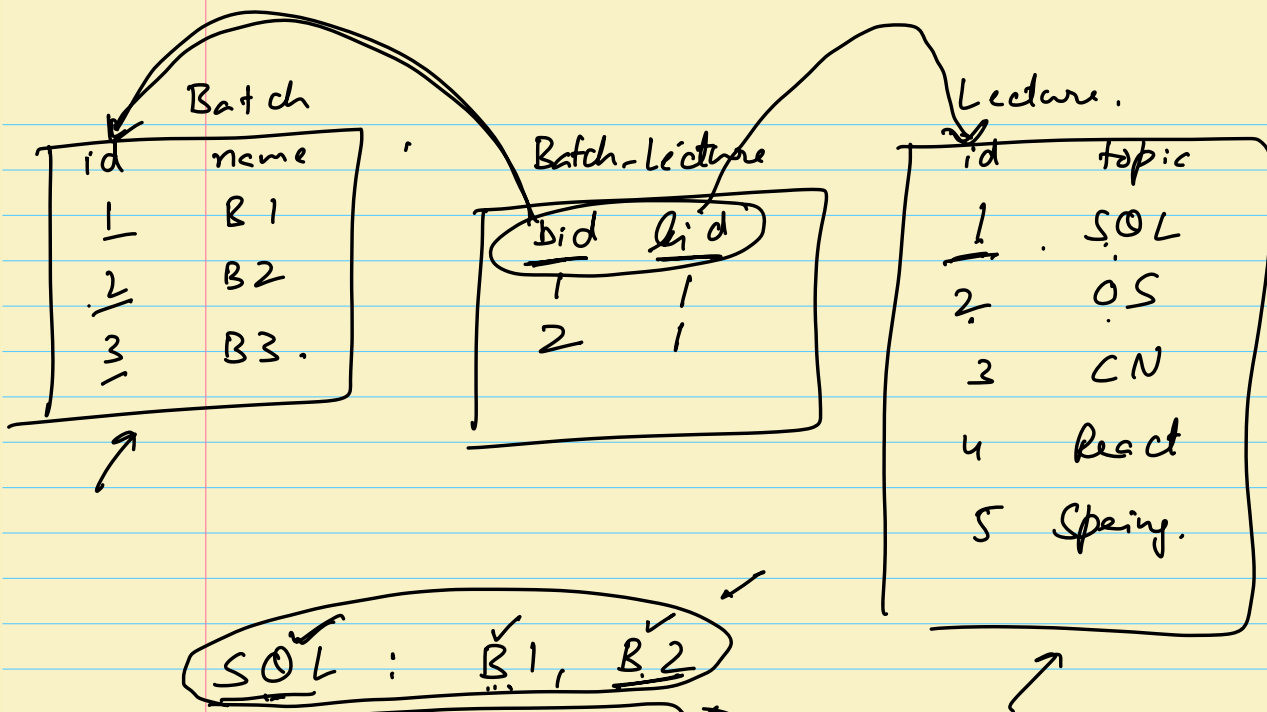 Batch
id name
1 B1
2 B2
3 B3.
Batch_Lecture
bid lid
1 1
2 1
Lecture.
id topic
1 SQL
2 OS
3 CN
4 React
5 Spring.
SQL : B1, B2